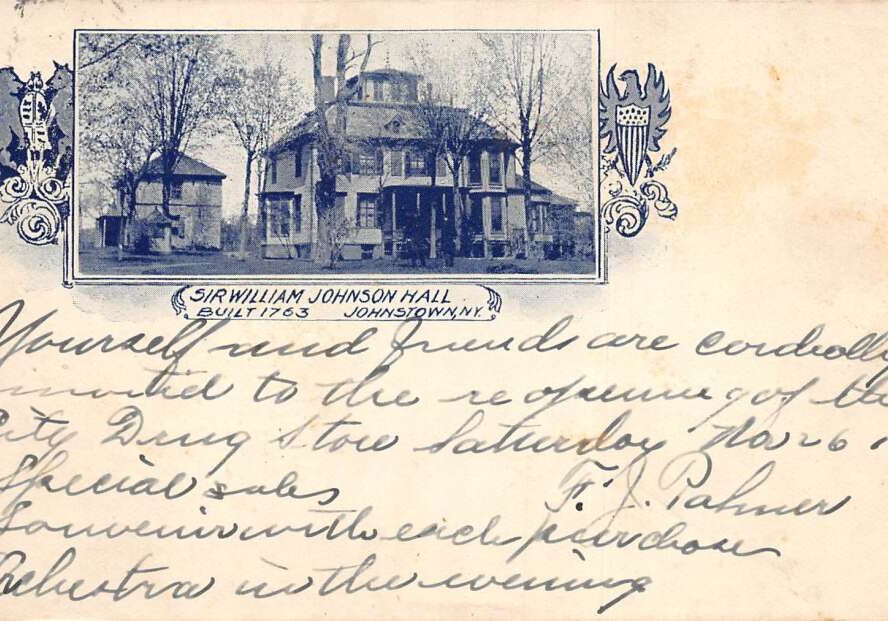 SIR WILLIAM JOHNSON HALL
BUILT 1763 JOHNSTOWN, N.Y.
Yourself and friends are cordially
invited to the reopening of the
City Drug Store Saturday Nov 26
Special sales F. J. Palmer
Souvenir with each purchase
Orchestra in the evening